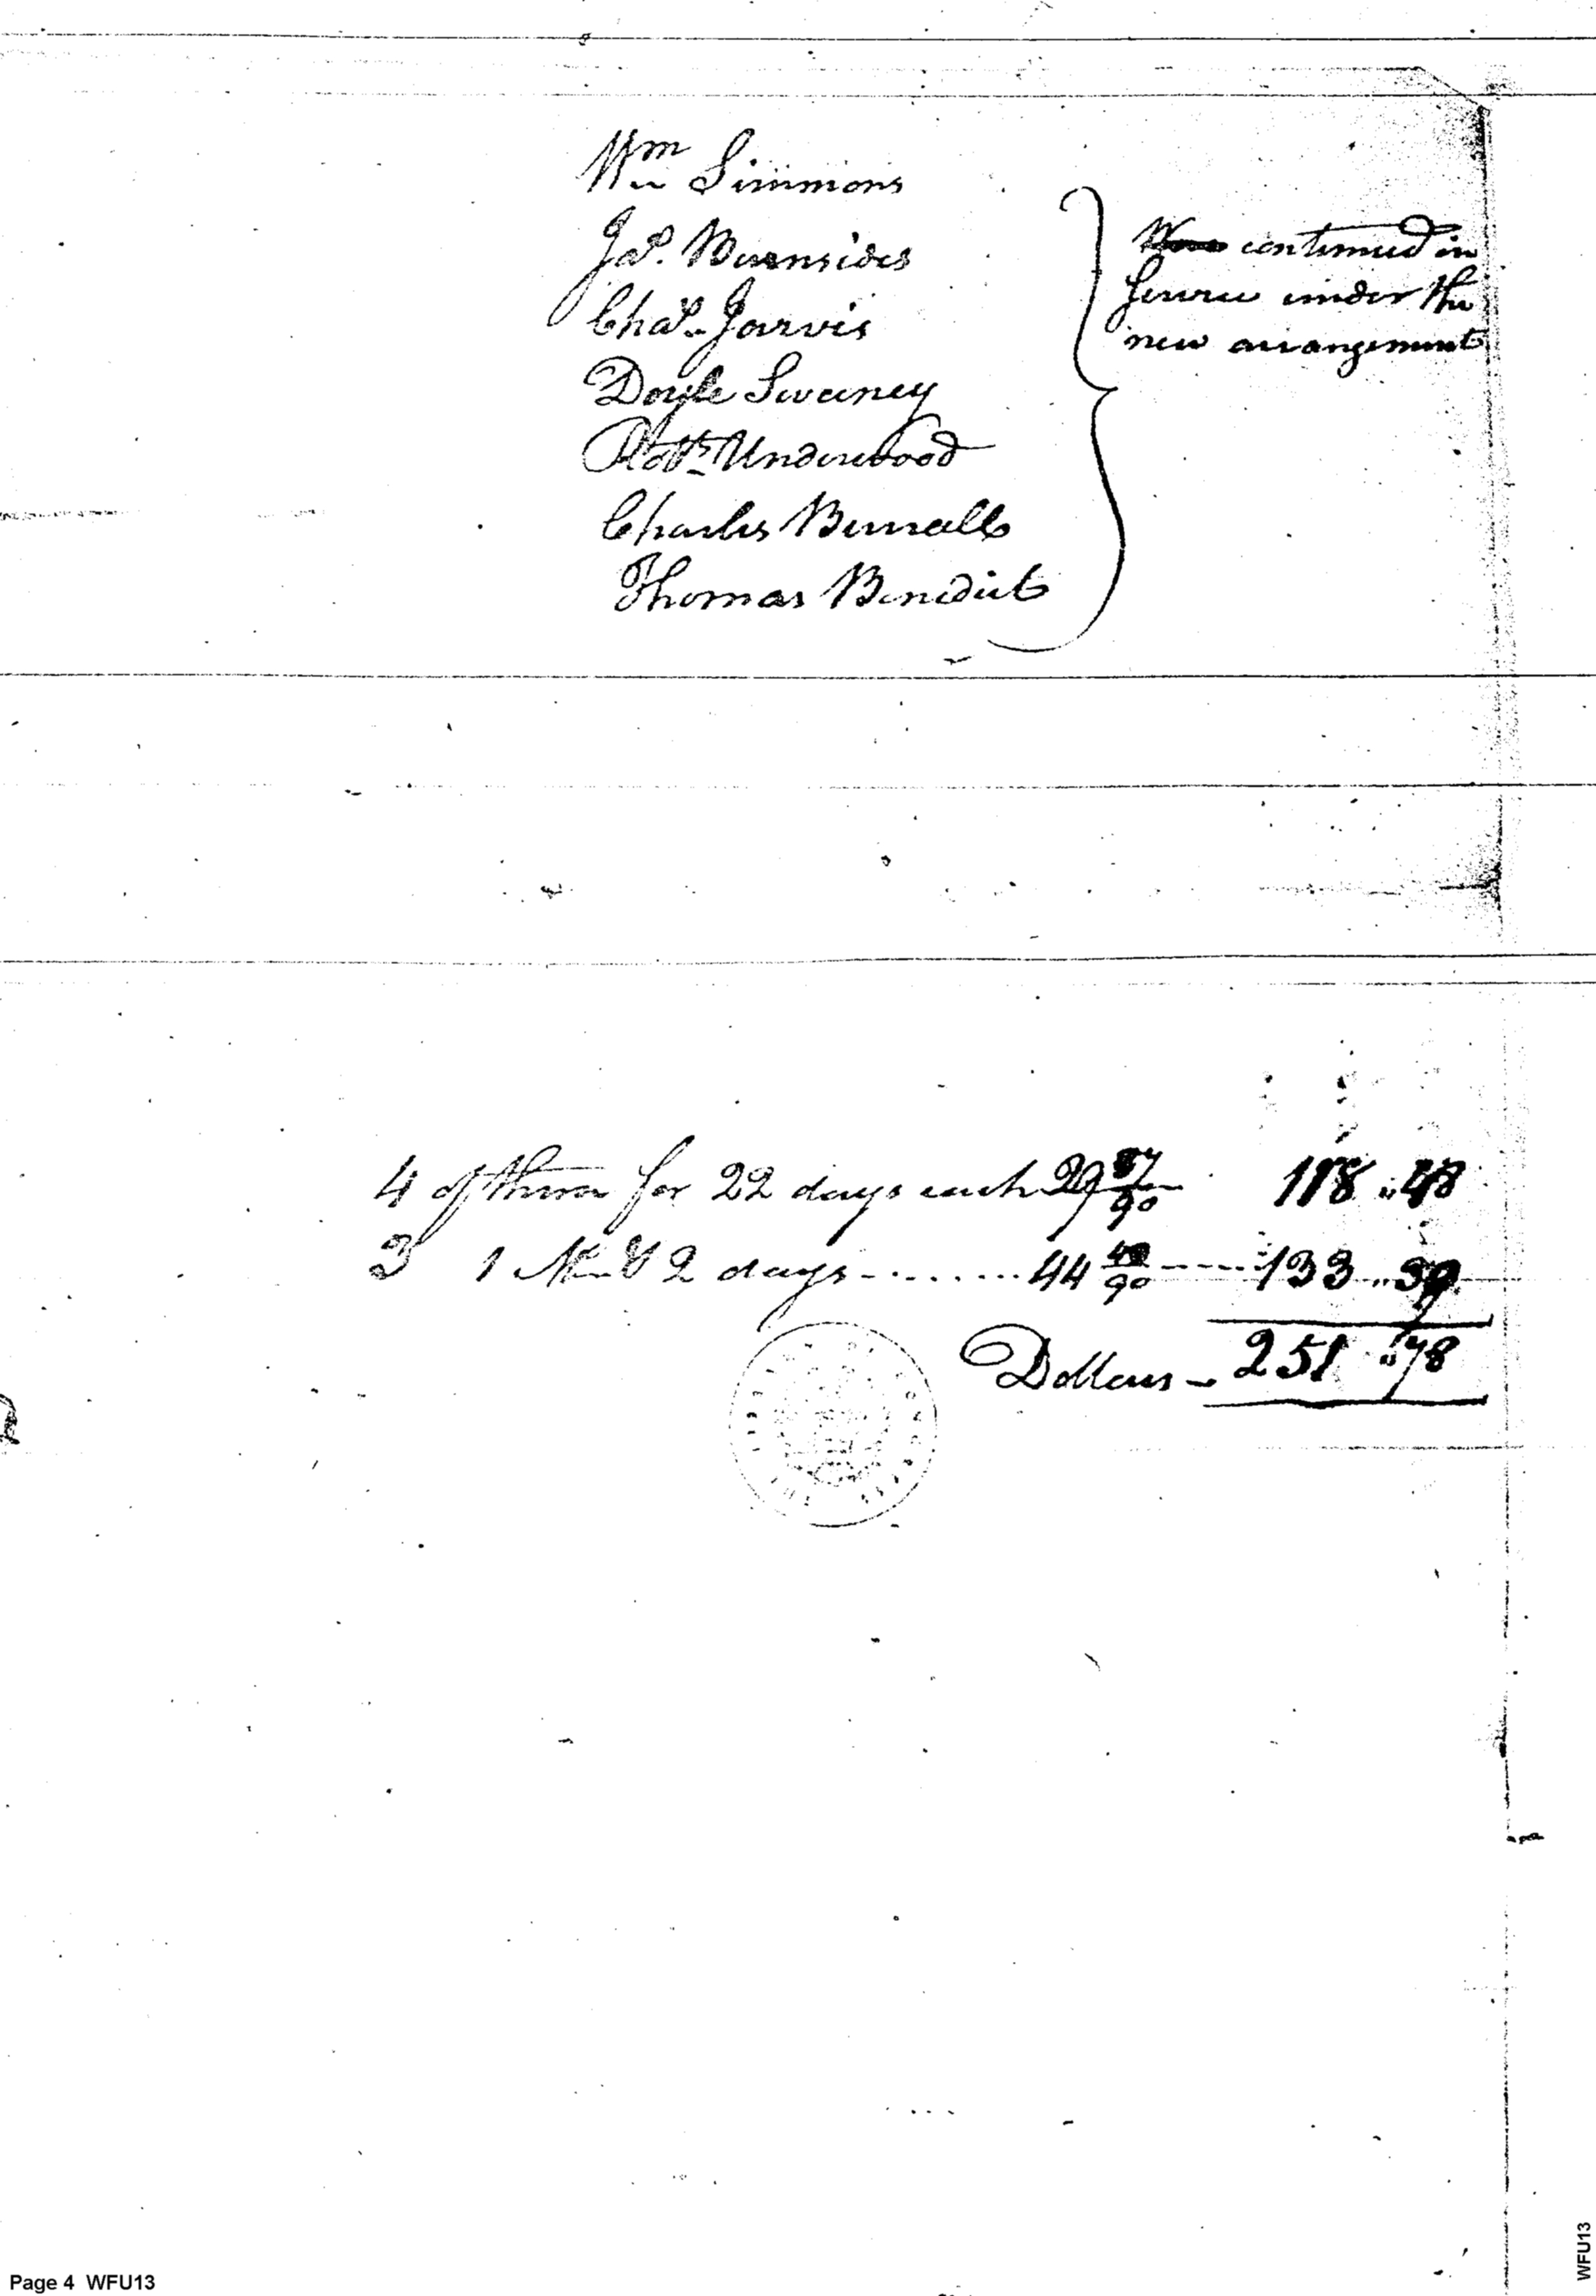 Wm Simmons
Jas. Burnsides
Chas. Jarvis
Doyle Sweeney
Robt. Underwood
Charles Burrall
Thomas Benedict
continued in
Service under the
new arrangement
4 of them for 22 days each 29 57/90 118 .. 48
3 1 Mo. & 2 days - ....... 44 40/90 ----- 133 .. 30
Dollars - 251 .. 78
Page 4 WFU13
WFU13